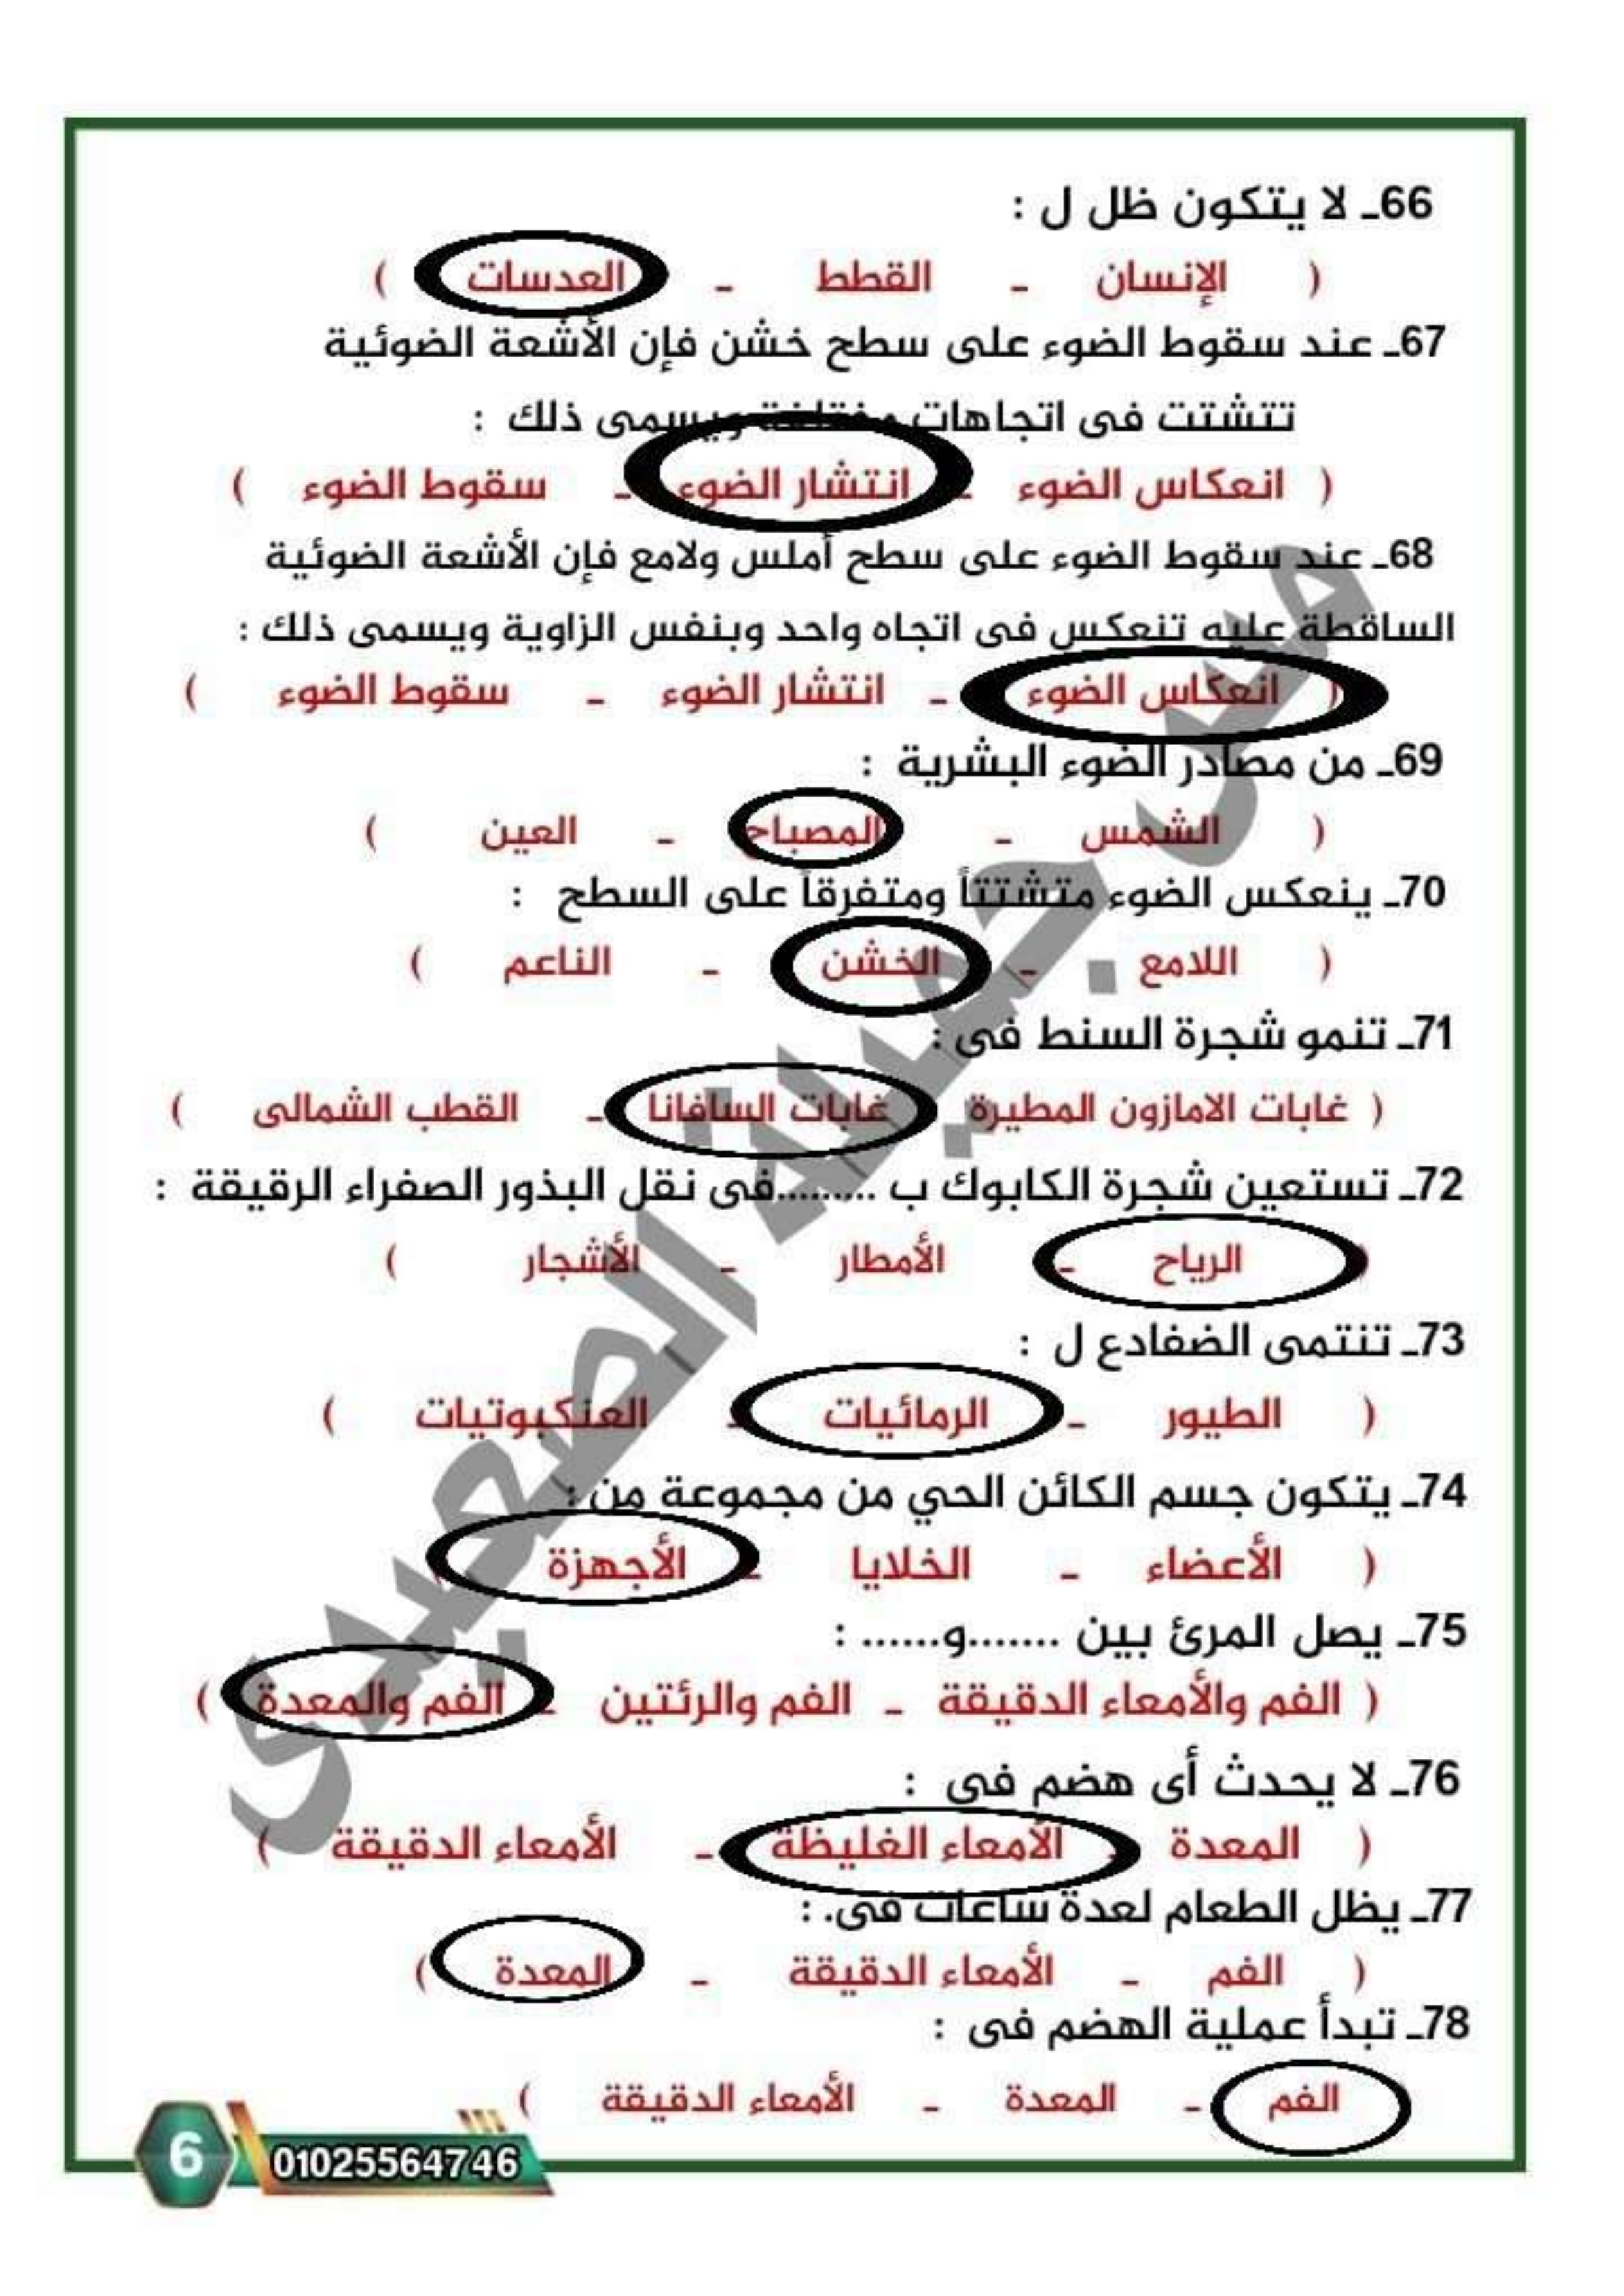 66ـ لا يتكون ظل ل :
( الإنسان ـ القطط ـ العدسات )
67ـ عند سقوط الضوء على سطح خشن فإن الأشعة الضوئية
تتشتت فى اتجاهات مختلفة ويسمى ذلك :
( انعكاس الضوء ـ انتشار الضوء ـ سقوط الضوء )
68ـ عند سقوط الضوء على سطح أملس ولامع فإن الأشعة الضوئية
الساقطة عليه تنعكس فى اتجاه واحد وبنفس الزاوية ويسمى ذلك :
( انعكاس الضوء ـ انتشار الضوء ـ سقوط الضوء )
69ـ من مصادر الضوء البشرية :
( الشمس ـ المصباح ـ العين )
70ـ ينعكس الضوء متشتتاً ومتفرقاً على السطح :
( اللامع ـ الخشن ـ الناعم )
71ـ تنمو شجرة السنط فى :
( غابات الامازون المطيرة غابات السافانا ـ القطب الشمالى )
72ـ تستعين شجرة الكابوك ب .........فى نقل البذور الصفراء الرقيقة :
( الرياح ـ الأمطار ـ الأشجار )
73ـ تنتمى الضفادع ل :
( الطيور ـ الرمائيات ـ العنكبوتيات )
74ـ يتكون جسم الكائن الحي من مجموعة من :
( الأعضاء ـ الخلايا ـ الأجهزة )
75ـ يصل المرئ بين .......و...... :
( الفم والأمعاء الدقيقة ـ الفم والرئتين ـ الفم والمعدة )
76ـ لا يحدث أى هضم فى :
( المعدة ـ الأمعاء الغليظة ـ الأمعاء الدقيقة )
77ـ يظل الطعام لعدة ساعات فى. :
( الفم ـ الأمعاء الدقيقة ـ المعدة )
78ـ تبدأ عملية الهضم فى :
الفم ـ المعدة ـ الأمعاء الدقيقة )
6 01025564746
ميس جميلة الصعيدى